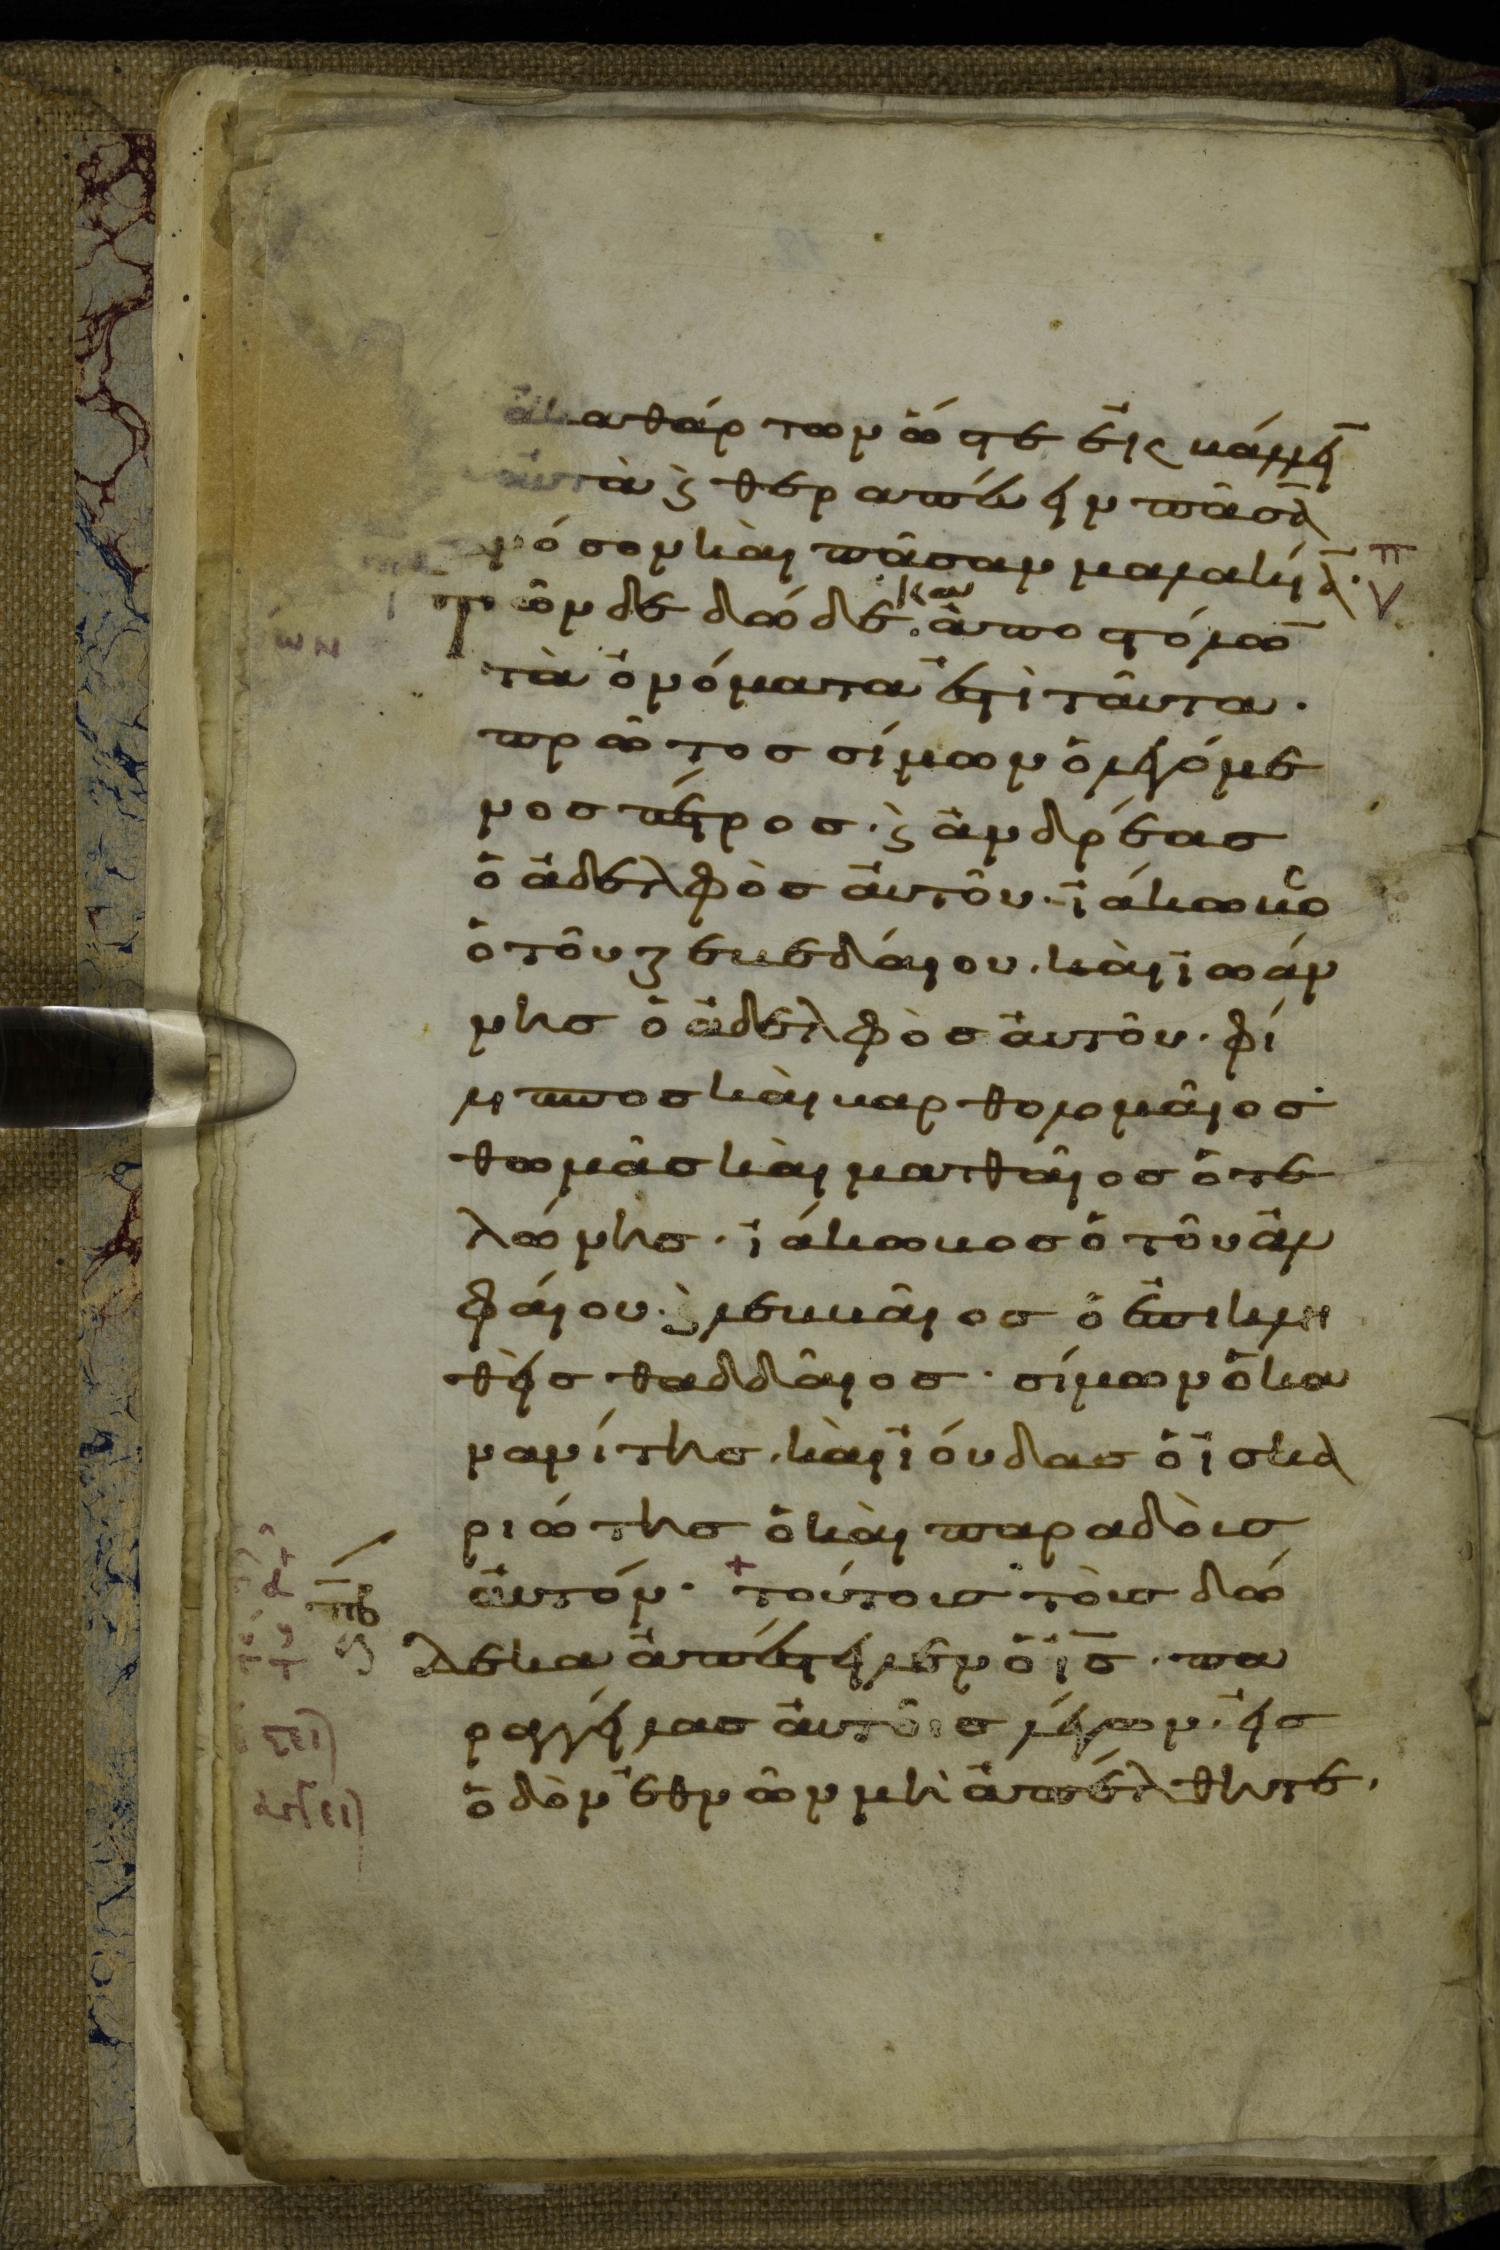 ἀκαθάρτων ὥστε ἐκβάλλειν
αὐτὰ ϗ θεραπεύειν πᾶσαν
νόσον καὶ πᾶσαν μαλακίαν·
π
τῶν δὲ δώδεκα ἀποστόλων
τὰ ὀνόματα ἐστὶ ταῦτα·
πρῶτος σίμων ὁ λεγόμε
νος πέτρος· ϗ ἀνδρέας
ὁ ἀδελφὸς αὐτοῦ· ἰάκωβο
ὁ τοῦ ζεβεδαίου· καὶ ἰωάν
νης ὁ ἀδελφὸς αὐτοῦ· φί
λιππος καὶ βαρθολομαῖος·
θωμᾶς καὶ ματθαῖος ὁ τε
λώνης· ἰάκωβος ὁ τοῦ ἀλ
φαίου· ϗ λεββαῖος ὁ ἐπικλη
θεὶς θαδδαῖος· σίμων ὁ κα
νανίτης· καὶ ἰούδας ὁ ἰσκα
ριώτης ὁ καὶ παραδοὺς
αὐτόν· + τούτους τοὺς δώ
πβ
δεκα ἀπέστειλεν ὁ ις· πα
ραγγείλας αὐτοῖς λέγων· εἰς
ὁδὸν ἐθνῶν μὴ ἀπέλθητε·